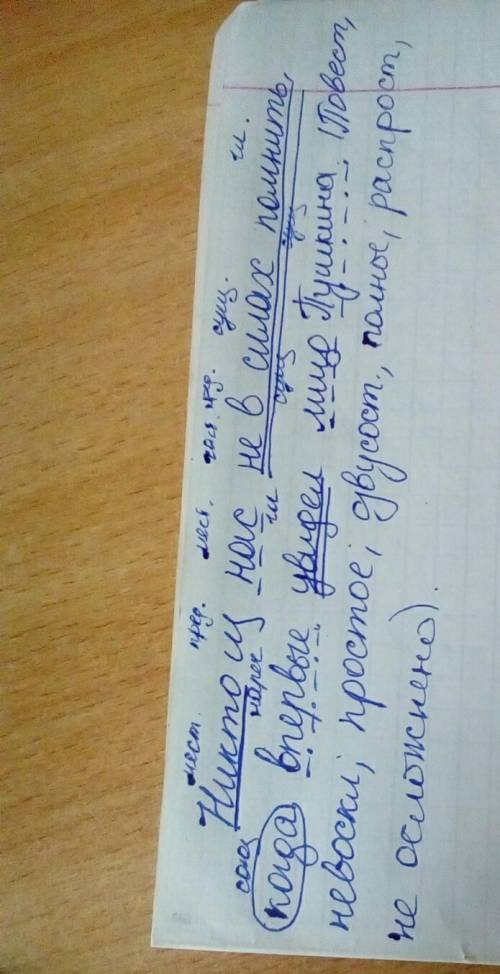 мест. пред. мест. част. пред. сущ. гл.
Никто из нас не в силах помнить,
союз нареч гл сущ сущ
когда впервые увидел лицо Пушкина (Повест,
невоскл, простое, двусост, полное, распрост,
не осложнено).